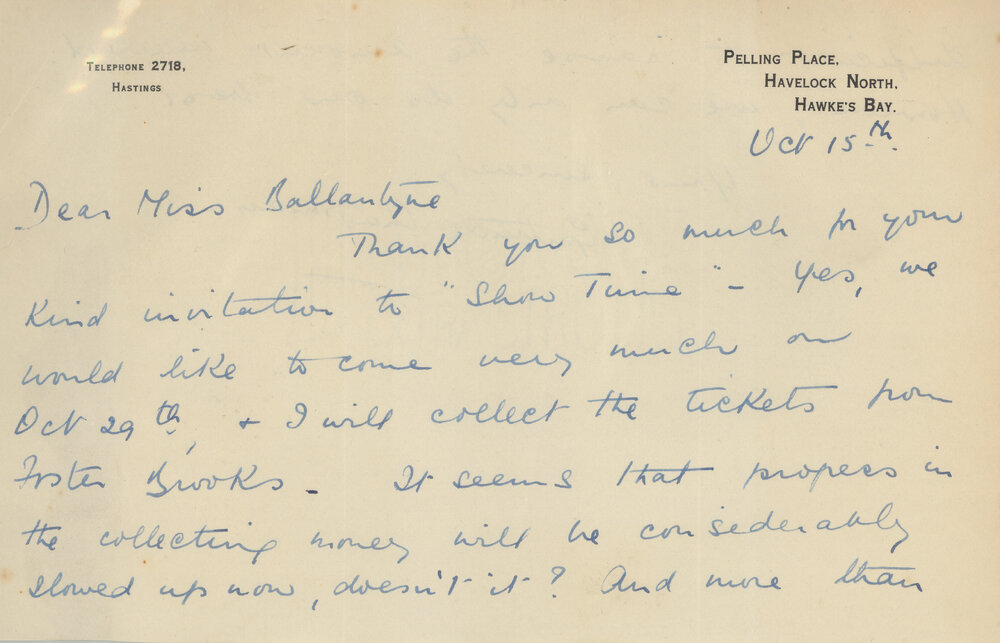 TELEPHONE 2718,
HASTINGS
PELLING PLACE,
HAVELOCK NORTH,
HAWKE'S BAY.
Oct 15th.
Dear Miss Ballantyne
Thank you so much for your
kind invitation to "Show Time" - Yes, we
would like to come very much on
Oct 29th, & I will collect the tickets from
Foster Brooks. It seems that progress in
the collecting money will be considerably
slowed up now, doesn't it? And more than